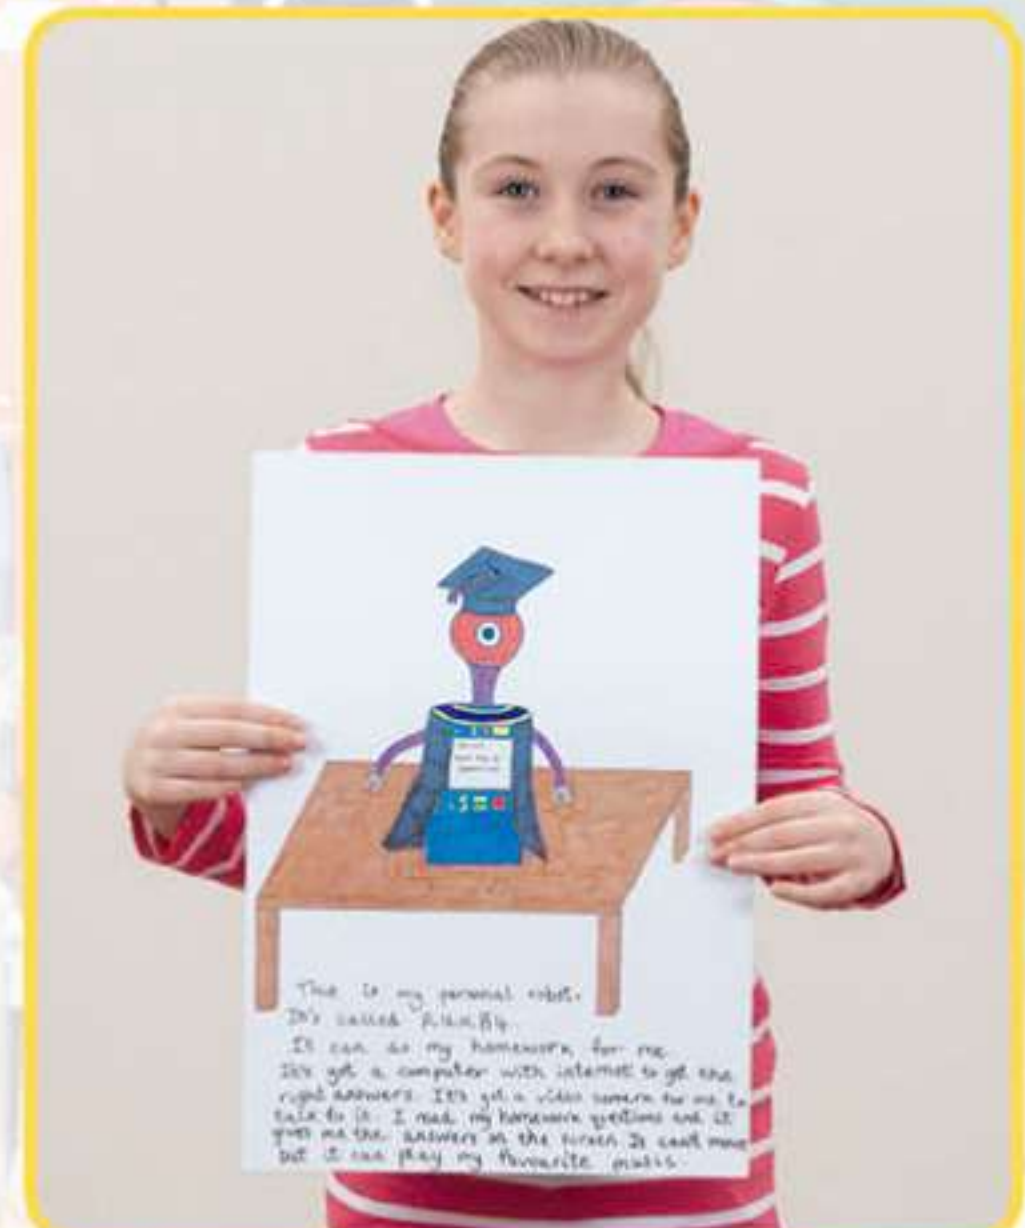 This is my personal robot.
It's called
It can do my homework for me
It's got a computer with internet to get the
right answers. It's got a video camera for me to
talk to it. I read my homework questions and it
gives me the answers on the screen. It can't move
but it can play my favourite music.